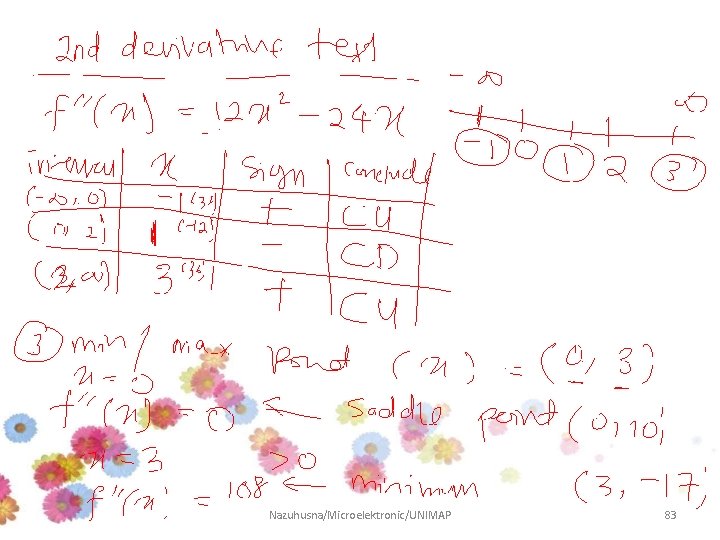 2nd derivative test
f''(x) = 12x² - 24x
-∞ ∞
-1 0 1 2 3
interval x sign conclude
(-∞, 0) -1 (36) + CU
(0, 2) 1 (-12) - CD
(2, ∞) 3 (36) + CU
③ min / max point (x) = (0, 3)
x = 0
f''(x) = 0 ← saddle point (0, 10)
x = 3 > 0
f''(x) = 108 ← minimum (3, -17)
Nazuhusna/Microelektronic/UNIMAP 83